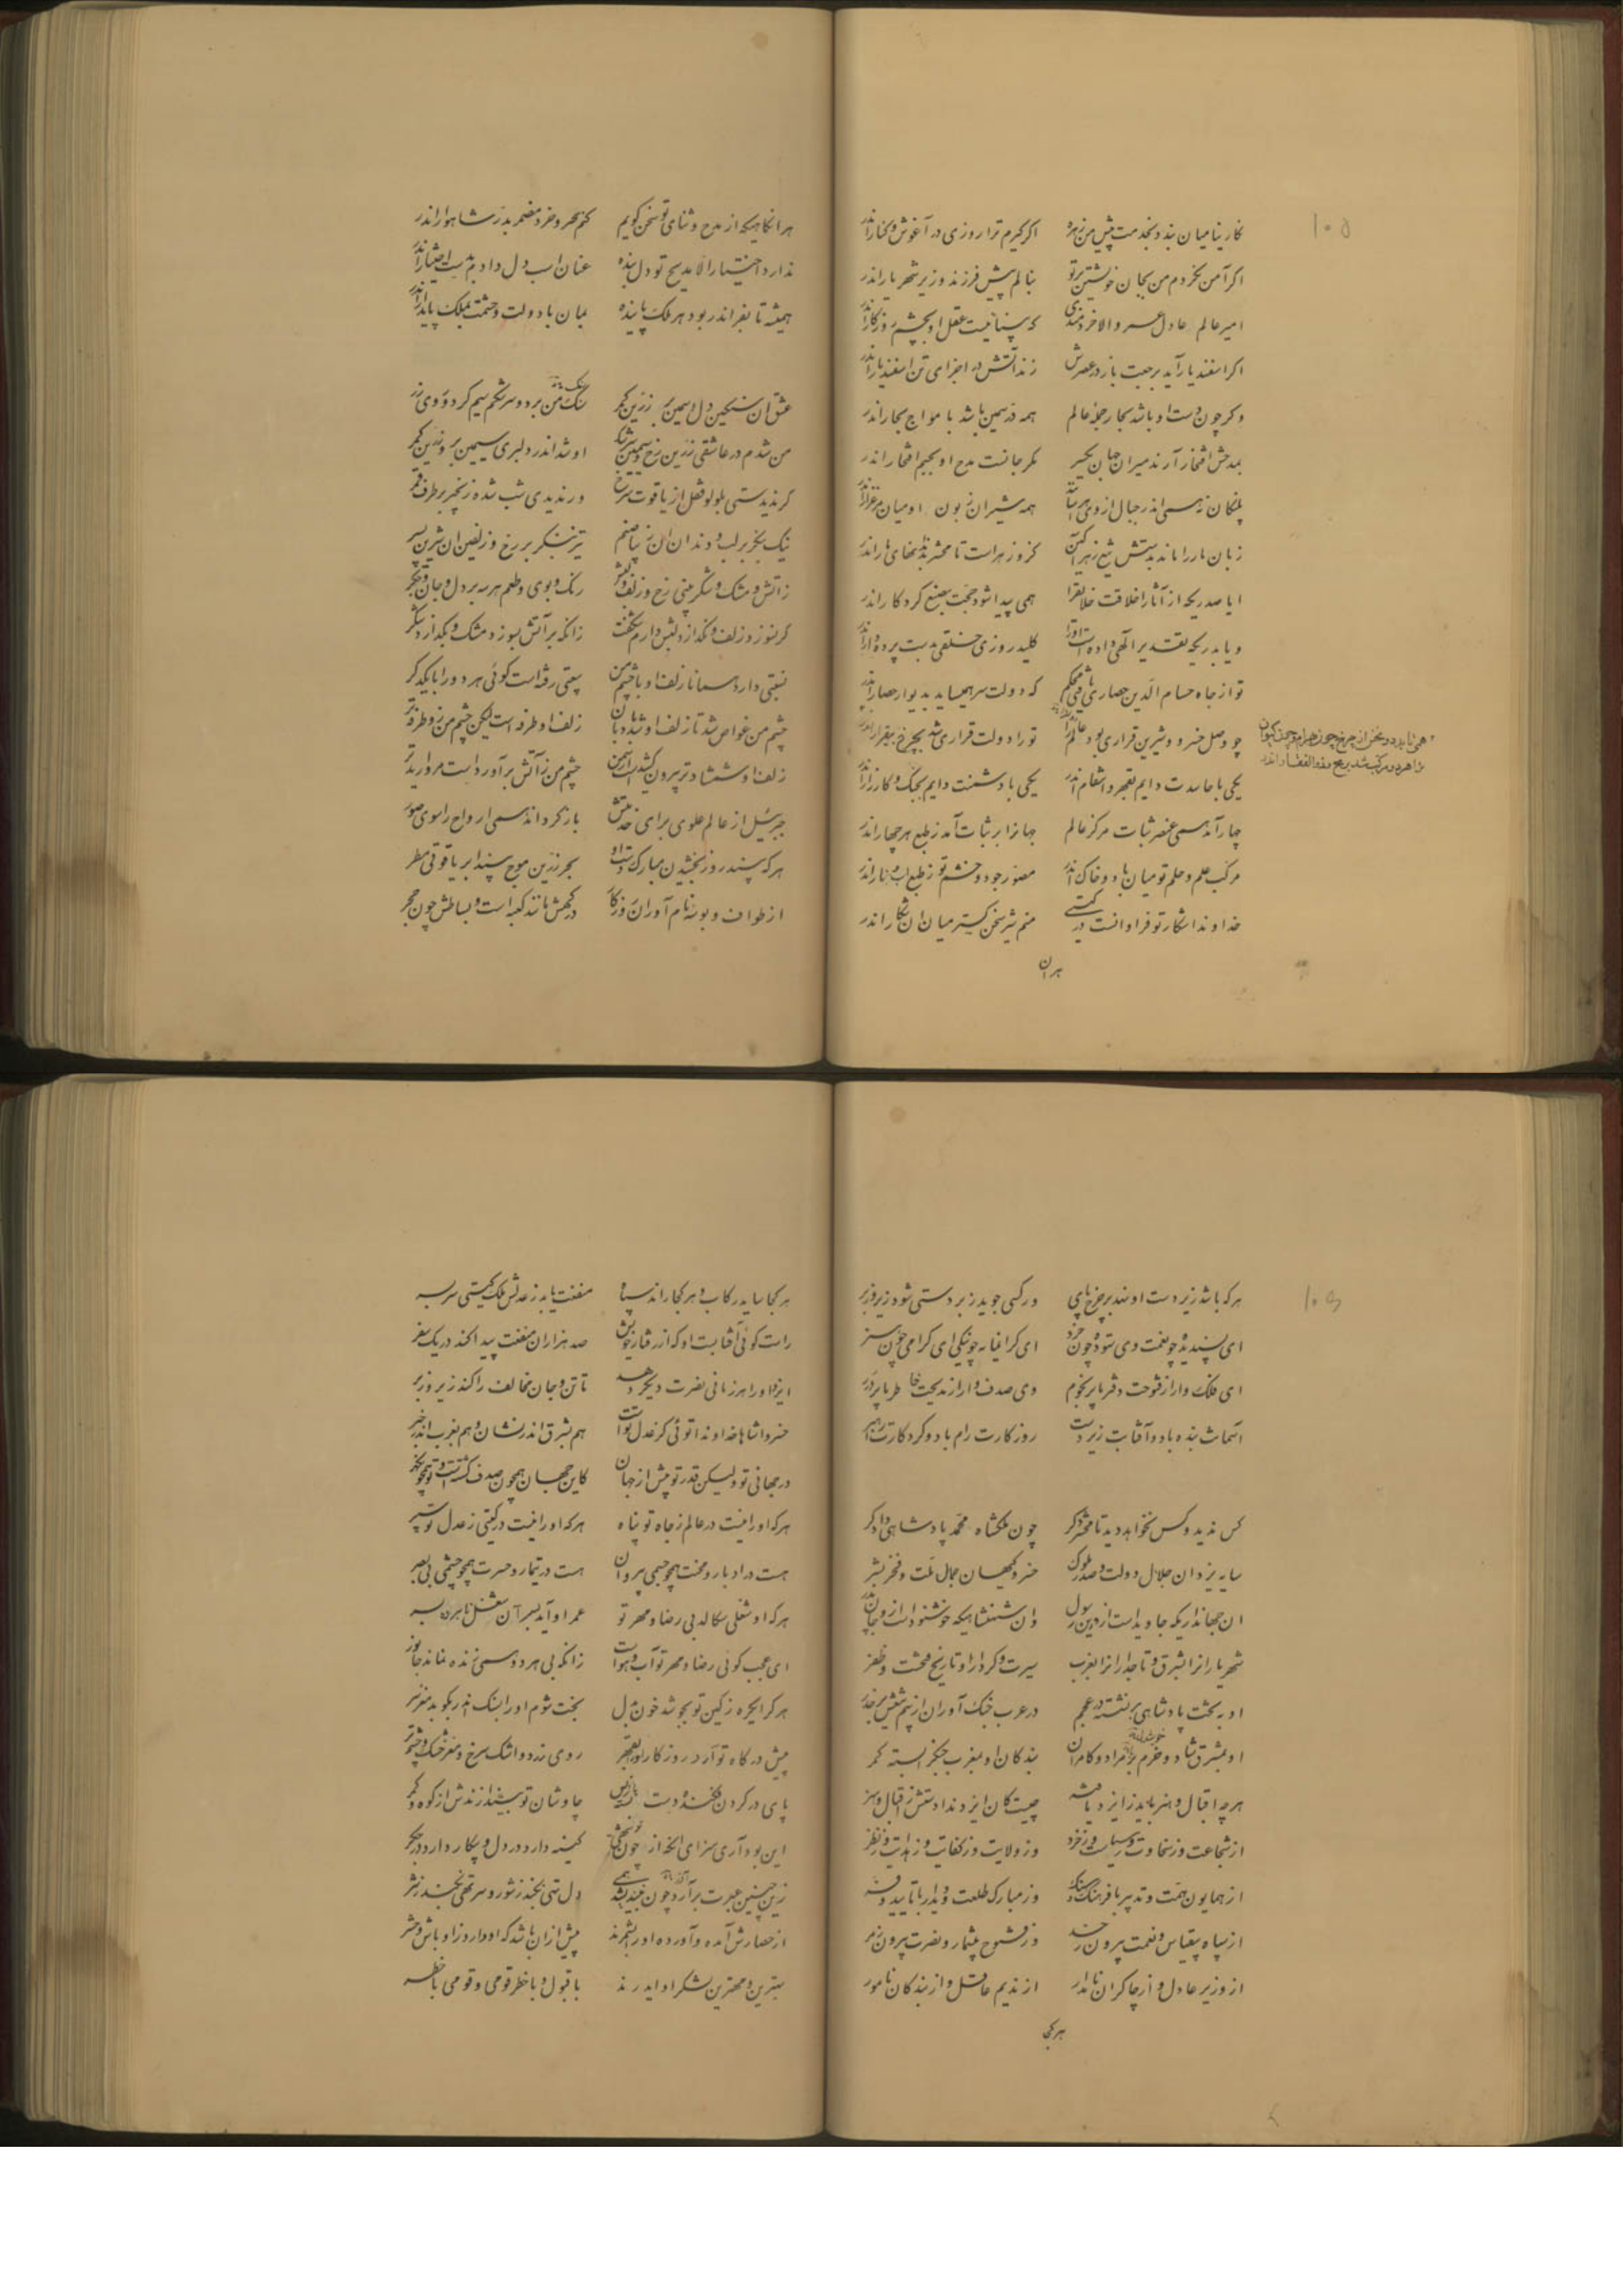 ۱۰۵
نگارینا میان بندد بخدمت پیش من زهره اگر گیرم ترا روزی در آغوش و کنار اندر
اگر آمن نخردم من بجان خویشتن بر تو بنالم پیش فرزند وزیر شهریار اندر
امیر عالم عادل عمر والا خردمندی که بیناییست عقل او بچشم روزگار اندر
اگر اسفندیار آید برجعت باز در عصرش زند آتش در اجزای تن اسفندیار اندر
وگر چون دست او باشد بحار جملهٔ عالم همه در ثمین باشد بامواج بحار اندر
بمدحش افتخار آرند میران جهان یکسر مگر جانست مدح او بجسم افتخار اندر
پلنگان زهمی اندر جبال از وی هراسانند همه شیران زبون او میان مرغزار اندر
زبان مار را ماند بدستش تیغ زهرآگین کزو زهر است تا محشر بدندانهای مار اندر
ایا صدریکه از آثار اخلاقت خلایق را همی پیدا شود حجت بصنع کردگار اندر
و یا بدریکه تقدیر الهی داده است او را کلید روزی خلقی بدست پرده‌دار اندر
تو از جاه حسام الدین حصاری یافتی محکم که دولت سر همیساید بدیوار حصار اندر
چو وصل خسرو و شیرین قراری بود عالم را تو را دولت قراری شد بچرخ بیقرار اندر
همی تابد دو نحس از چرخ چون بهرام و چون کیوان
یکی با حاسدت دایم بقهر و انتقام اندر یکی با دشمنت دایم بجنگ و کارزار اندر
چهار آمد همی عنصر ثبات مرکز عالم جهانرا بر ثبات آمد ز طبع هر چهار اندر
مرکب علم و حلم تو میان باد و خاک اندر مصور جود و خشم تو ز طبع آب و نار اندر
خداوندا شکار تو فراوانست در گیتی منم شیر سخن گستر میان آن شکار اندر
هر ان
هر آنگاهیکه از مدح و ثنای تو سخن گویم کنم بحر خرد مضمر بدر شاهوار اندر
ندارد اختیار الا مدیح تو دل بنده عنان اسب دل دادم بدست اختیار اندر
همیشه تا بقر اندر بود هر ملک پاینده بمان با دولت و حشمت بملک پایدار اندر
عشق آن سنگین دل سیمین بر زرین کمر سنگ من برد و سرشکم سیم کرد و روی زر
من شدم در عاشقی زرین رخ و سیمین سرشک او شد اندر دلبری سیمین بر و زرین کمر
گر ندیدستی بلولو قفل از یاقوت سرخ ور ندیدی شب شده زنجیر بر طرف قمر
نیک بنگر بر لب و دندان آن زیبا صنم تیز بنگر بر رخ و زلفین آن شیرین پسر
ز آتش و مشک و شکر بینی رخ و زلف و لبش رنگ و بوی و طعم هر سه بر دل و جان و جگر
گر نسوزد زلف و نگدازد لبش دارم شگفت زانکه بر آتش بسوزد مشک و بگدازد شکر
نسبتی دارد همانا زلف او با چشم من بیعتی رفته است گوئی هر دو را با یکدگر
چشم من غواص شد تا زلف او شد دزدبان زلف او طرفه است لیکن چشم من زو طرفه‌تر
زلف او شمشاد تر بیرون کشیدست از سمن چشم من ز آتش برآورد است مروارید تر
جبرئیل از عالم علوی برای خدمتش باز گرداند همی ارواح را سوی صور
هر که بیند روز بخشیدن مبارک دست او بحر زرین موج بیند ابر یاقوتی مطر
از طواف و بوسهٔ نام آوران روزگار درگهش مانند کعبه است و بساطش چون حجر
۱۰۶
هر که باشد زیر دست او نهد بر چرخ پای ور کسی جوید زبردستی شود زیر و زبر
ای پسندیده چو نعمت وی ستوده چون خرد ای گرانمایه چو نیکی ای گرامی چون هنر
ای فلک وار از فتوحت دفتر ما پر نجوم وی صدف وار از مدیحت خاطر ما پر درر
آسمانت بنده باد و آفتابت زیردست روزگارت رام باد و کردگارت راهبر
کس ندید و کس نخواهد دید تا محشر دگر چون ملکشاه محمد پادشاهی دادگر
سایه یزدان جلال دولت و صدر ملوک خسرو گیهان جمال ملت و فخر بشر
ان جهانداریکه جاوید است ازو دین رسول وان شهنشاهیکه خوشنود است ازو جان پدر
شهریارانرا بشرق و تاجدارانرا بغرب سیرت و کردار او تاریخ فتحست و ظفر
او به تخت پادشاهی بر نشسته در عجم در عرب جنگ آوران از بیم تیغش بر حذر
او بمشرق شاد و خرم بر مراد و کامران بندگان او بمغرب جنگ را بسته کمر
هرچه اقبال و هنر باید ز ایزد یافته چیست کان ایزد ندادستش ز اقبال و هنر
از شجاعت وز سخاوت وز سیاست وز خرد وز ولایت وز کفایت وز هدایت وز نظر
از همایون همت و تدبیر با فرهنگ و سنگ وز مبارک طلعت و دیدار با تایید و فر
از سپاه بیقیاس و نعمت بیرون ز حد وز فتوح بیشمار و نصرت بیرون ز مر
از وزیر عادل و از چاکران نامدار از ندیم عاقل و از بندگان نامور
هر کجا
هر کجا ساید رکاب و هر کجا راند سپاه منفعت یابد ز عدلش ملک گیتی سر بسر
راست گوئی آفتابست او که از رفتار خویش صد هزاران منفعت پیدا کند در یک سفر
ایزد او را هر زمانی نصرت دیگر دهد تا تن و جان مخالف را کند زیر و زبر
خسروا شاها خداوندا توئی کز عدل تست هم بشرق اندر نشان و هم بغرب اندر خبر
در جهانی تو ولیکن قدر تو بیش از جهان کاین جهان همچون صدف گشتست و تو همچون گهر
هر که او را نیست در عالم ز جاه تو پناه هر که او را نیست در گیتی ز عدل تو سپر
هست در ادبار و محنت همچو جسمی بی روان هست در تیمار و حسرت همچو چشمی بی بصر
هر که او شغلی سگالد بی رضا و مهر تو عمر او آید بسر آن شغل نابرده بسر
ای عجب گوئی رضا و مهر تو آب و هواست زانکه بی هر دو همی زنده نماند جانور
هر کرا یکره ز کین تو بجوشد خون دل بخت شوم او را بسنگ اندر بکوبد مغز سر
پیش درگاه تو آرد روزگار او را بقهر روی زرد و اشک سرخ و مغز خشک و چشم تر
پای در گردن فکنده دست باز پس چاوشان تو بیندازندش از کوه و کمر
این بود آری سزای آنکه از چون تو شهی کینه دارد در دل و پیکار دارد در جگر
زین چنین عبرت برآرد چون نیندیشد همی دل تهی نکند ز شور و سر تهی نکند ز شر
از حصارش آمده و آورده او را بشمرند پیش از ان باشد که او دارد ز اوباش و حشر
بهترین و مهترین لشکر او ایدرند با قبول و با خطر قومی و قومی با خطر